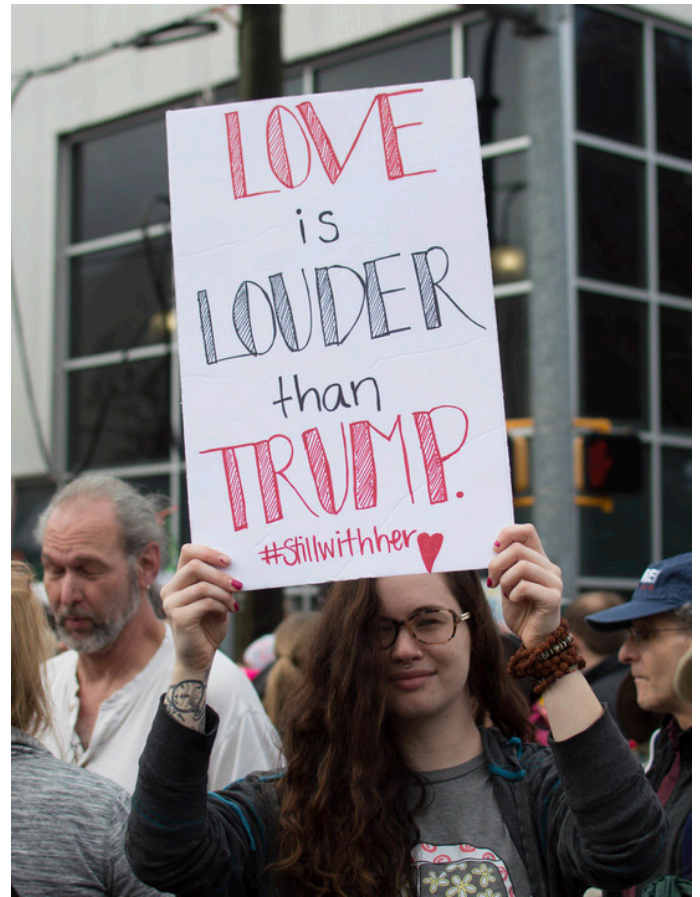 LOVE
is
LOUDER
than
TRUMP.
#stillwithher